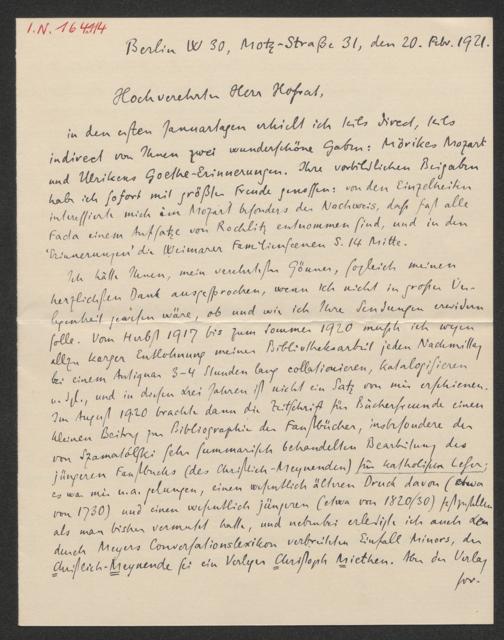 I. N. 164114
Berlin W 30, Motz-Straße 31, den 20. Febr. 1921.
Hochverehrter Herr Hofrat,
in den ersten Januartagen erhielt ich teils direct, teils
indirect von Ihnen zwei wunderschöne Gaben: Mörikes Mozart
und Ulrikens Goethe-Erinnerungen. Ihre vorbildlichen Beigaben
hab ich sofort mit größter Freude genossen: von den Einzelheiten
interessierte mich am Mozart besonders der Nachweis, daß fast alle
Facta einem Aufsatze von Rochlitz entnommen sind, und in den
'Erinnerungen' die Weimarer Familienscenen S. 14 Mitte.
Ich hätte Ihnen, mein verehrtester Gönner, sogleich meinen
herzlichsten Dank ausgesprochen, wenn ich nicht in großer Ver-
legenheit gewesen wäre, ob und wie ich Ihre Sendungen erwidern
solle. Vom Herbst 1917 bis zum Sommer 1920 mußte ich wegen
allzu karger Entlohnung meiner Bibliotheksarbeit jeden Nachmittag
bei einem Antiquar 3-4 Stunden lang collationieren, katalogisieren
u. dgl., und in diesen drei Jahren ist nicht ein Satz von mir erschienen.
Im August 1920 brachte dann die Zeitschrift für Bücherfreunde einen
kleinen Beitrag zur Bibliographie der Faustbücher, insbesondere der
von Szamatólski sehr summarisch behandelten Bearbeitung des
jüngeren Faustbuchs (des Christlich-Meynenden) für katholische Leser;
es war mir u. a. gelungen, einen wesentlich ältern Druck davon (etwa
von 1730) und einen wesentlich jüngeren (etwa von 1820/30) festzustellen
als man bisher vermutet hatte, und nebenbei erledigte ich auch den
durch Meyers Conversationslexikon verbreiteten Einfall Minors, der
Christlich-Meynende sei ein Verleger Christoph Miethen. Aber der Verlag
for-